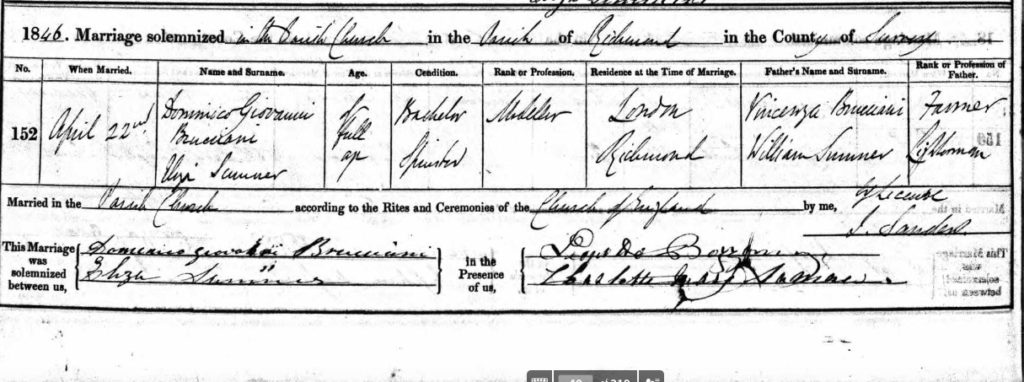 1846. Marriage solemnized in the Parish Church in the Parish of Richmond in the County of Surrey
No. When Married. Name and Surname. Age. Condition. Rank or Profession. Residence at the Time of Marriage. Father's Name and Surname. Rank or Profession of Father.
152 April 22nd Dominico Giovanni Bruciani of full age Bachelor Modeller London Vincenza Bruciani Farmer
Eliza Sumner Spinster Richmond William Sumner
Married in the Parish Church according to the Rites and Ceremonies of the Church of England by me,
This Marriage was solemnized between us, Domenico Giovanni Brucciani
Eliza Sumner
in the Presence of us,
Charlotte Mary